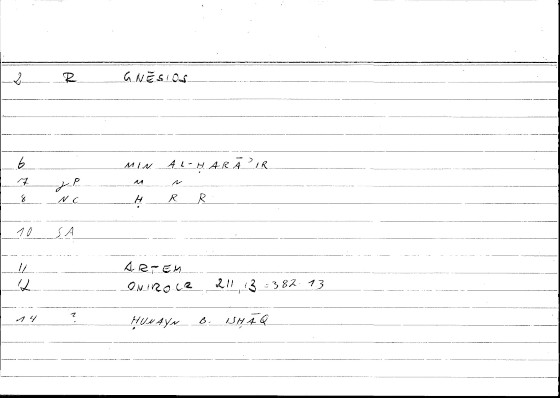 2 R GNĒSIOS
6 MIN AL-ḤARĀʾIR
7 gP M N
8 NC Ḥ R R
10 SA
11 ARTEM
12 ONIROCR 211,13 = 382.13
14 ? ḤUNAYN B. ISḤĀQ